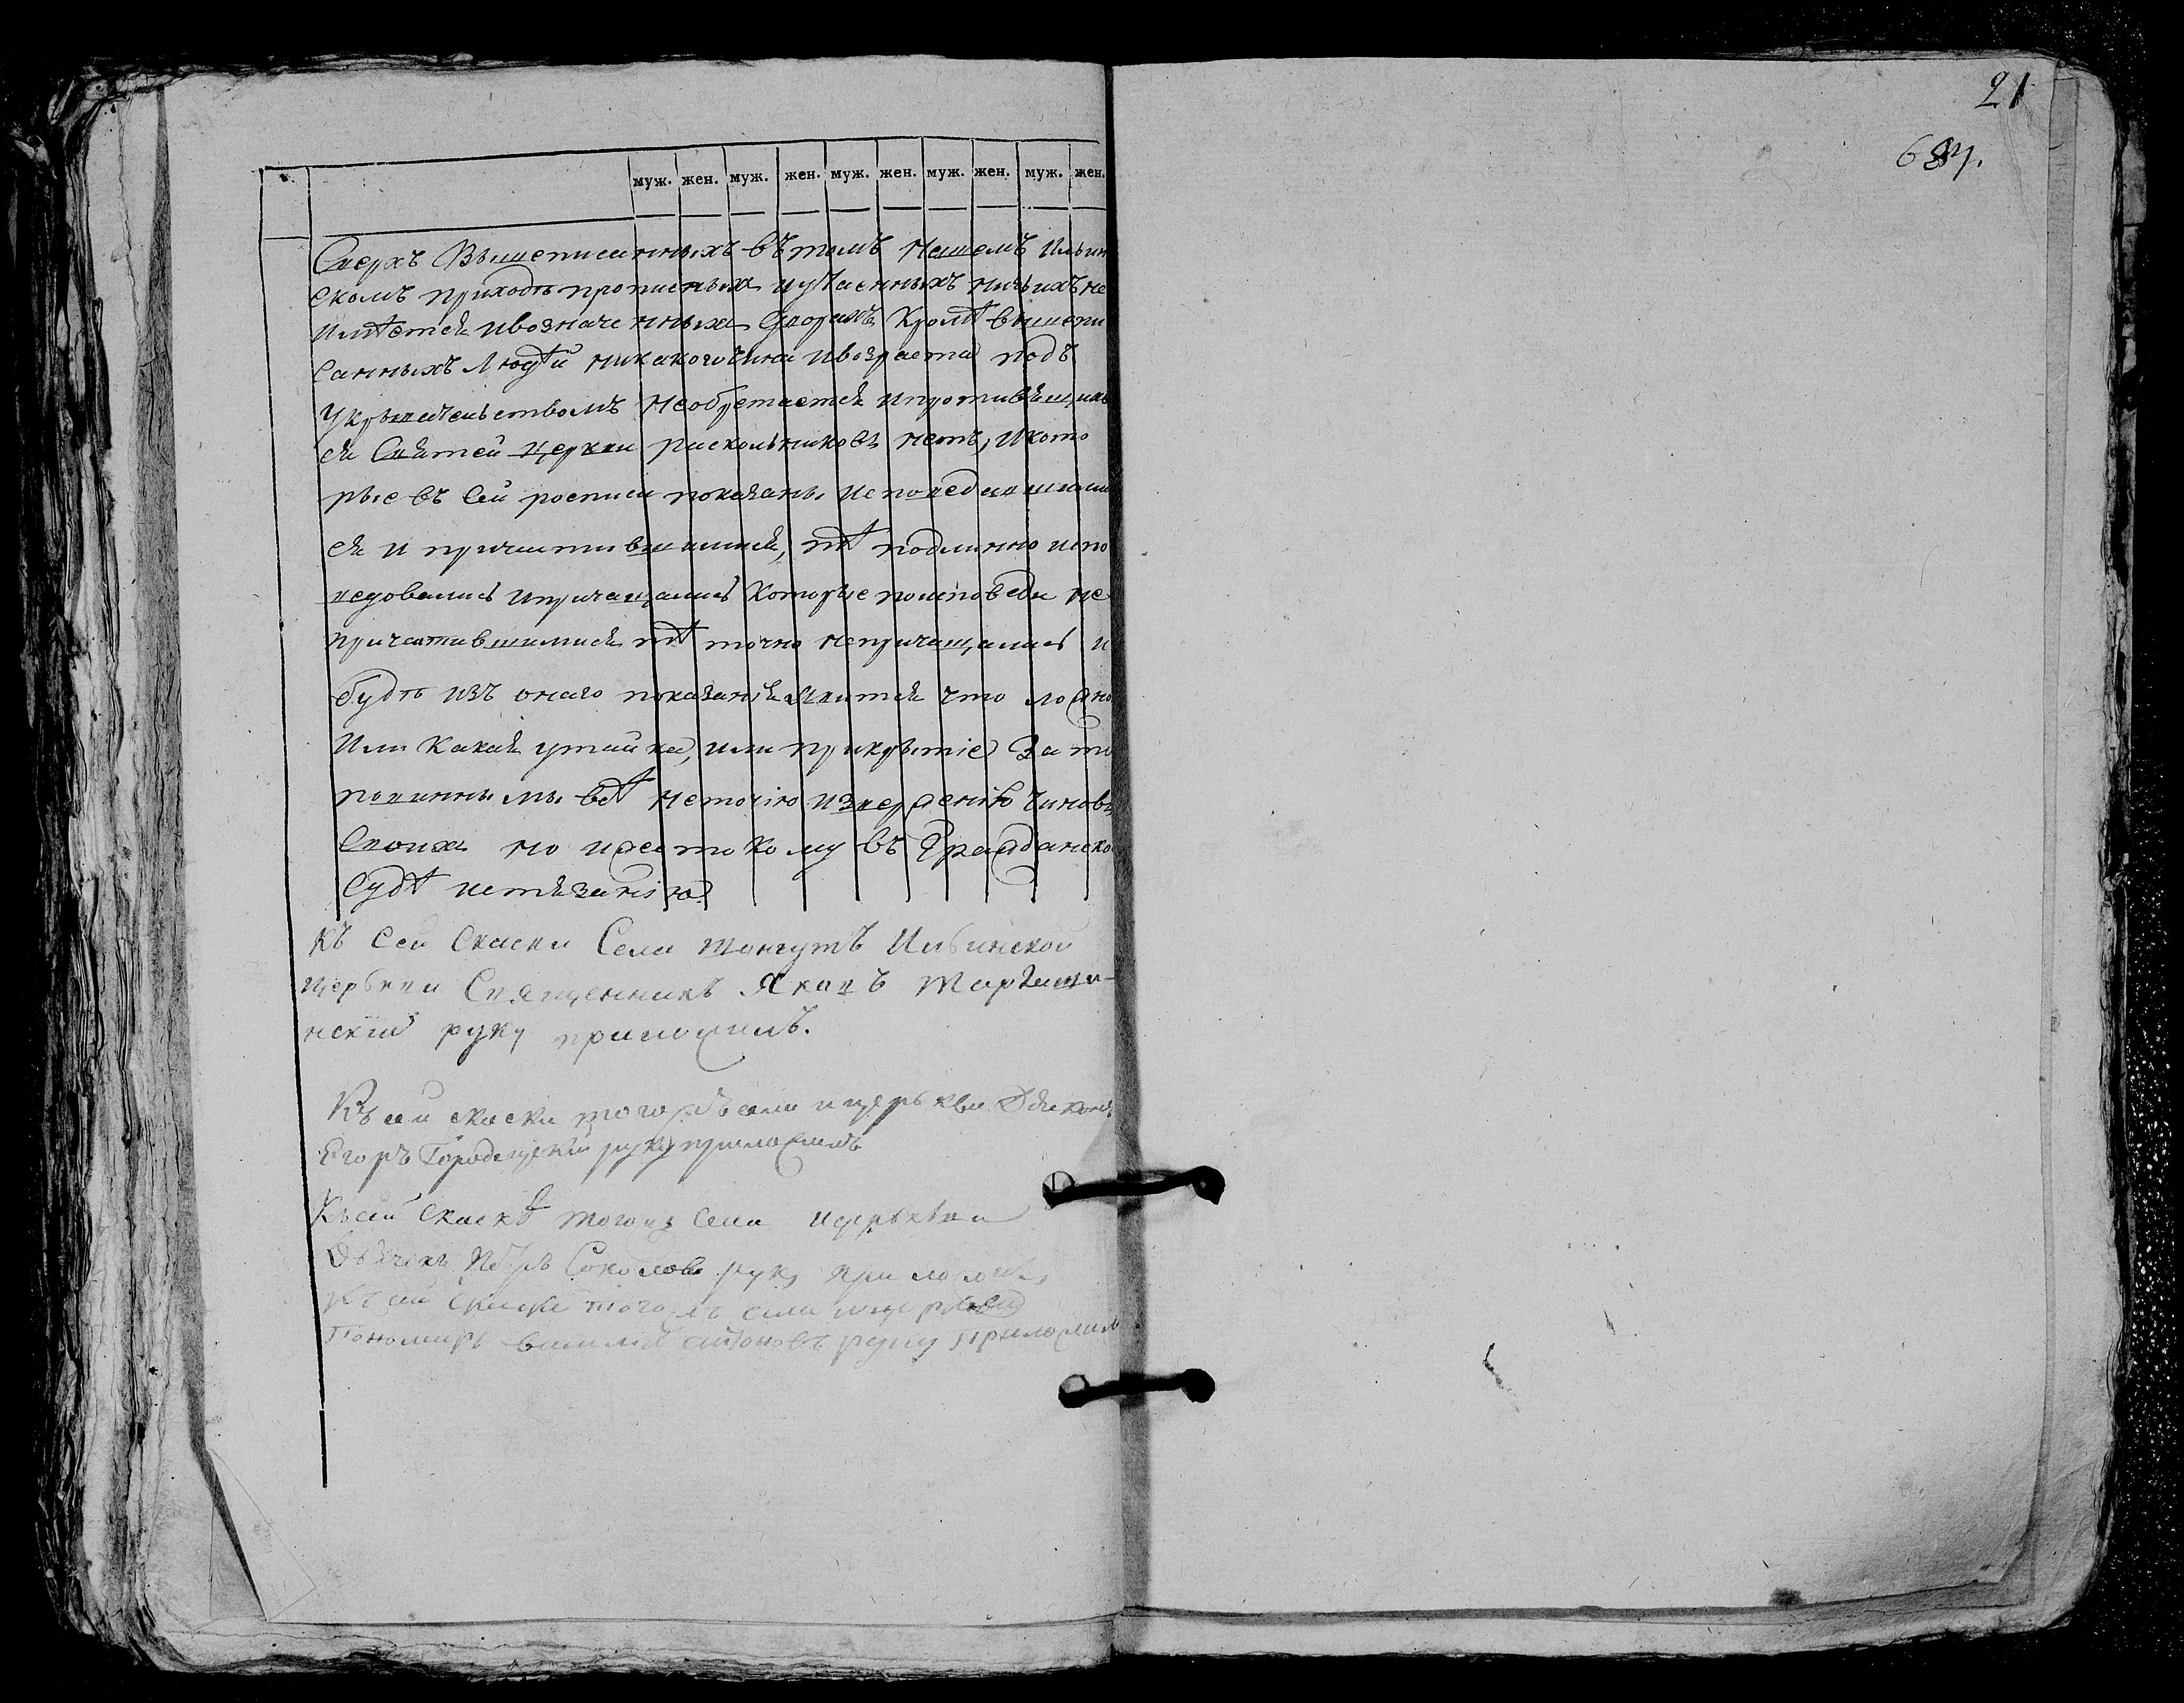 21
684.
муж. жен. муж. жен. муж. жен. муж. жен. муж. жен.
Сверхъ Вышеписанныхъ въ томъ Нашемъ Ильин
скомъ приходѣ прописныхъ иутаенныхъ ничьихъ не
имѣется ивозначенныхъ Дворахъ Кромѣ вышепи
санныхъ Людѣй никакогочина ивозраста подъ
укрывательствомъ Необретается ипротивящихъ
ся Святей церкви раскольниковъ нетъ, Икото
рые въ Сей росписи показаны исповедавшими
ся и причастившимися, тѣ подлинно испо
ведовались ипричащались Которые поисповеди не
причастившимися тѣ точно непричащались и
будѣ изъ онаго показанія явится что ложно
Или Какая утайка, или прикрытіе За то
повинны мы всѣ неточію изверженію Чиновъ
Своихъ но ижестокому въ Гражданско
Судѣ истязанію
Къ Сей Скаски Села Тангутъ Ильинской
церькви Священникъ Яковъ
нскій руку приложилъ.
Къ сей скаски тогожъ села ицерькви Дьяконъ
Егоръ Городецкій руку приложилъ
Къ сей Скаскѣ тогожъ Села ицерькви
Дьячекъ Петръ Соколовъ руку приложилъ
Къ сей Скаске тогожъ села ицеркви
Пономарь василей руку приложилъ